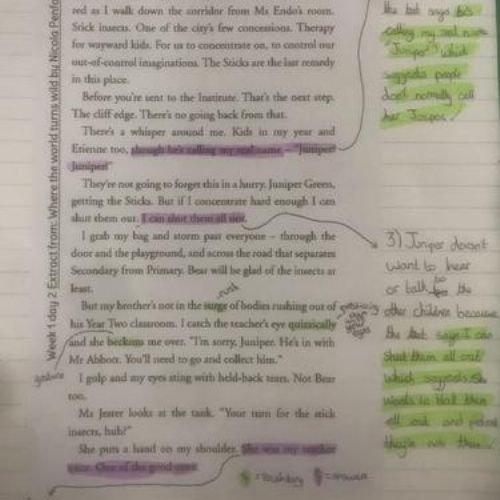 Week 1 day 2 Extract from: Where the world turns wild by Nicola Penfo
red as I walk down the corridor from Ms Endo's room.
Stick insects. One of the city's few concessions. Therapy
for wayward kids. For us to concentrate on, to control our
out-of-control imaginations. The Sticks are the last remedy
in this place.
Before you're sent to the Institute. That's the next step.
The cliff edge. There's no going back from that.
There's a whisper around me. Kids in my year and
Etienne too, though he's calling my real name – "Juniper!
Juniper!"
They're not going to forget this in a hurry. Juniper Green,
getting the Sticks. But if I concentrate hard enough I can
shut them out. I can shut them all out.
I grab my bag and storm past everyone – through the
door and the playground, and across the road that separates
Secondary from Primary. Bear will be glad of the insects at
least.
rush
But my brother's not in the surge of bodies rushing out of
his Year Two classroom. I catch the teacher's eye quizzically
and she beckons me over. "I'm sorry, Juniper. He's in with
Mr Abbott. You'll need to go and collect him."
I gulp and my eyes sting with held-back tears. Not Bear
too.
Ms Jester looks at the tank. "Your turn for the stick
insects, huh?"
She puts a hand on my shoulder. She was my teacher
once. One of the good ones.
= vocabulary = answers
the text says his
calling my real name
Juniper which
suggests people
don't normally call
her Juniper.
3) Juniper doesn't
want to hear
or talk to the
other children because
the text says I can
shut them all out
which suggests she
wants to blot them
all out and pretend